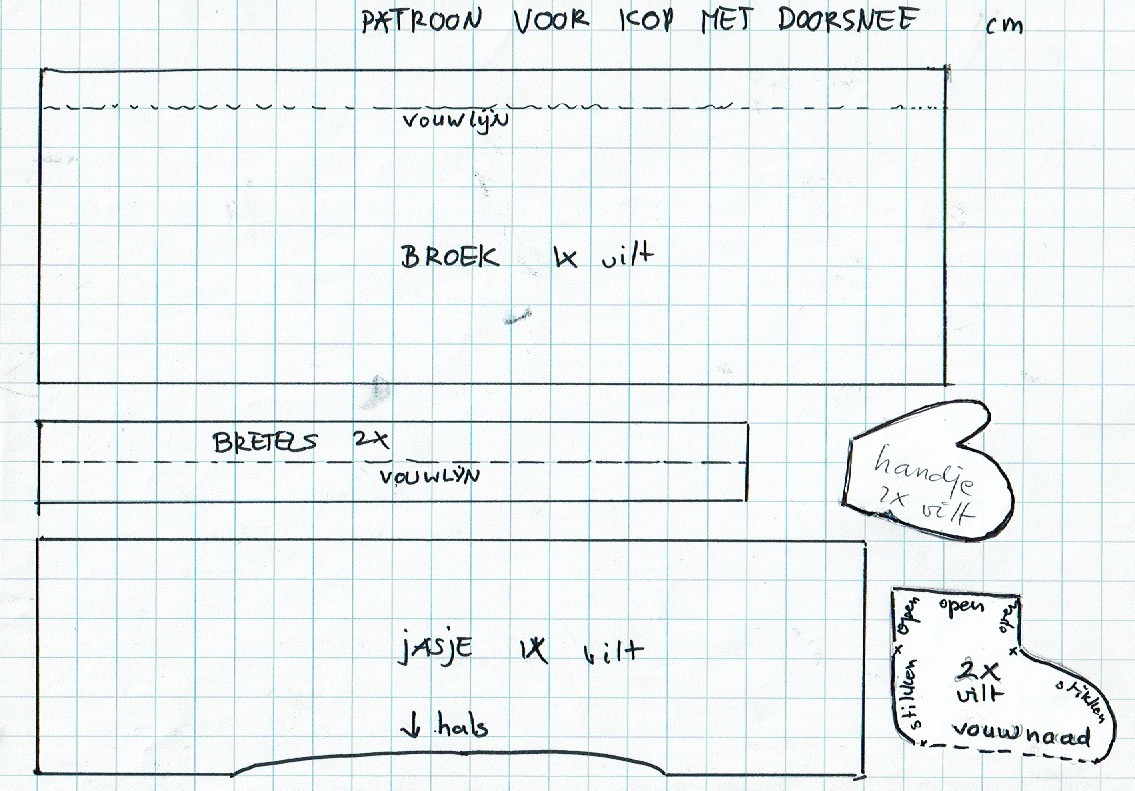 PATROON VOOR KOP MET DOORSNEE cm
vouwlijn
BROEK 1X vilt
BRETELS 2X
VOUWLIJN
handje
2X vilt
jASjE 1X vilt
↓ hals
open
open
open
x
x
stikken
stikken
2X
vilt
vouwnaad